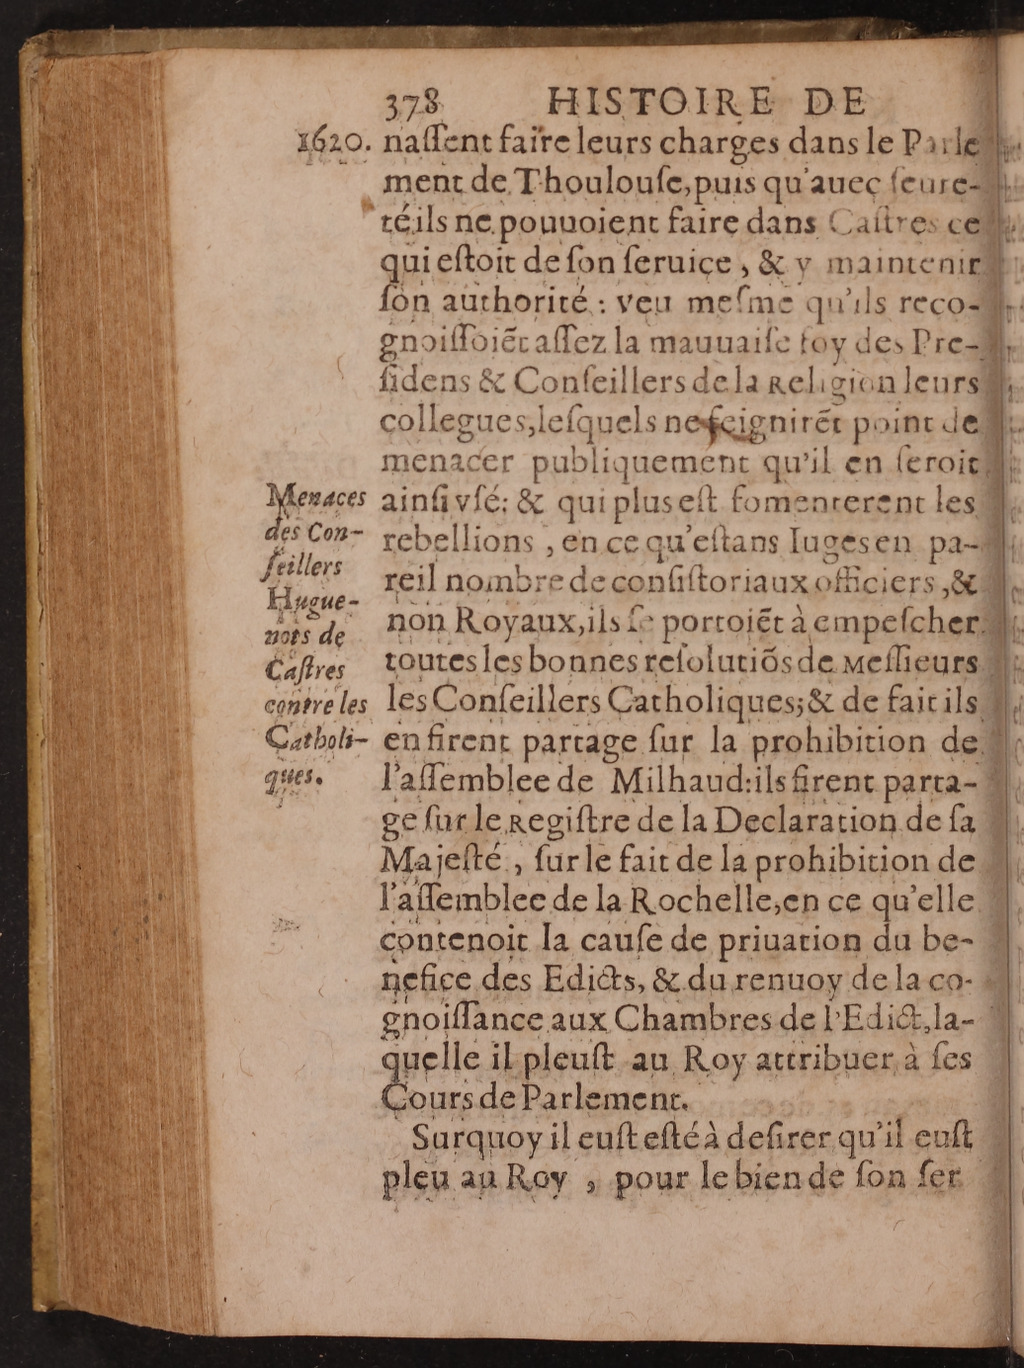 378 HISTOIRE DE
1620. naſſent faire leurs charges dans le Parle
ment de Thoulouſe, puis qu'auec ſeure-
té ils ne pouuoient faire dans Caſtres ce
qui eſtoit de ſon ſeruice, & y maintenir
ſon authorité : veu meſme qu'ils reco-
gnoiſſoiẽt aſſez la mauuaiſe foy des Pre-
ſidens & Conſeillers de la Religion leurs
collegues, leſquels ne feignirẽt point de
menacer publiquement qu'il en ſeroit
ainſi vſé: & qui plus eſt fomenterent les
rebellions, en ce qu'eſtans Iuges en pa-
reil nombre de conſiſtoriaux officiers, &
non Royaux, ils ſe portoiẽt à empeſcher
toutes les bonnes reſolutiõs de Meſſieurs
les Conſeillers Catholiques; & de fait ils
en firent partage ſur la prohibition de
l'aſſemblee de Milhaud: ils firent parta-
ge ſur le Regiſtre de la Declaration de ſa
Majeſté, ſur le fait de la prohibition de
l'aſſemblee de la Rochelle, en ce qu'elle
contenoit la cauſe de priuation du be-
nefice des Edicts, & du renuoy de la co-
gnoiſſance aux Chambres de l'Edict, la-
quelle il pleuſt au Roy attribuer à ſes
Cours de Parlement.
Surquoy il euſt eſté à deſirer qu'il euſt
pleu au Roy, pour le bien de ſon ſer
Menaces
des Con-
ſeillers
Hugue-
nots de
Caſtres
contre les
Catholi-
ques.